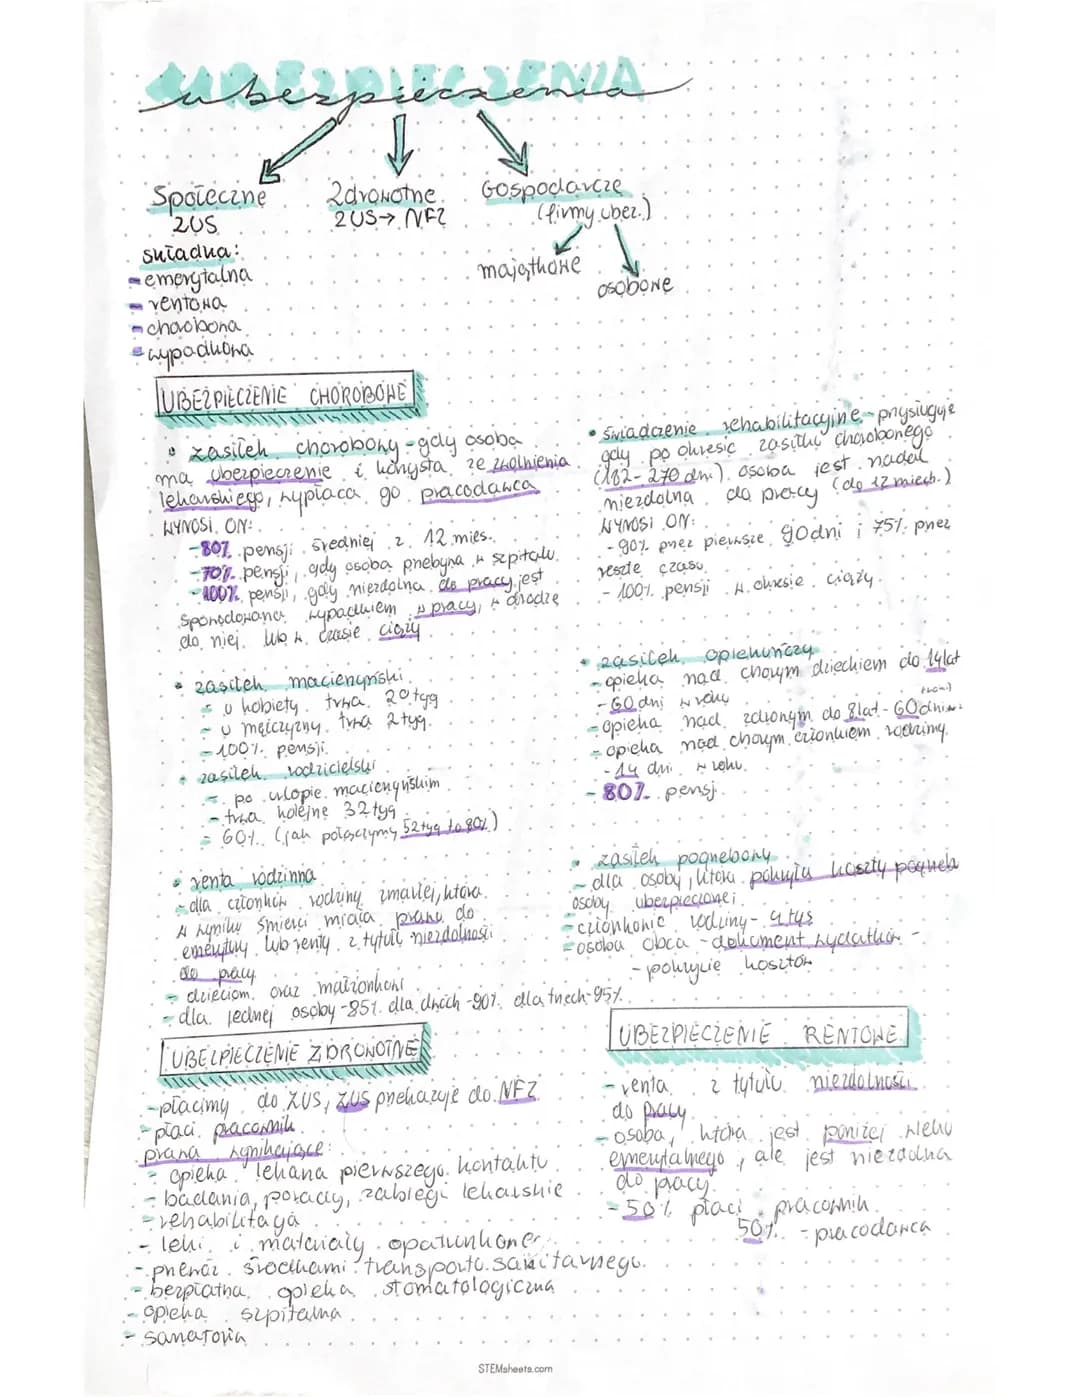 UBEZPIECZENIA
ubezpieczenia
Społeczne
ZUS
składka:
- emerytalna
- rentowa
- chorobowa
- wypadkowa
Zdrowotne
ZUS → NFZ
Gospodarcze
(firmy ubez.)
majątkowe
osobowe
UBEZPIECZENIE CHOROBOWE
• zasiłek chorobowy - gdy osoba
ma ubezpieczenie i korzysta ze zwolnienia
lekarskiego, wypłaca go pracodawca
WYNOSI ON:
- 80% pensji średniej z 12 mies.
- 70% pensji, gdy osoba przebywa w szpitalu
- 100% pensji, gdy niezdolna do pracy jest
spowodowana wypadkiem w pracy, w drodze
do niej lub w czasie ciąży
• świadczenie rehabilitacyjne - przysługuje
gdy po okresie zasiłku chorobowego
(182-270 dni) osoba jest nadal
niezdolna do pracy (do 12 miech.)
WYNOSI ON:
- 90% przez pierwsze 90dni i 75% przez
resztę czasu
- 100% pensji w okresie ciąży
• zasiłek macierzyński
- u kobiety trwa 20 tyg
- u mężczyzny trwa 2 tyg.
- 100% pensji
• zasiłek rodzicielski
- po urlopie macierzyńskim
- trwa kolejne 32 tyg
- 60% (jak połączymy 52tyg to 80%)
• zasiłek opiekuńczy
- opieka nad chorym dzieckiem do 14lat
- 60 dni w roku
- opieka nad zdrowym do 8lat - 60dni w
roku)
- opieka nad chorym członkiem rodziny
- 14 dni w roku
- 80% pensji
• renta rodzinna
- dla członków rodziny zmarłej, która
w wyniku śmierci miała prawo do
emerytury lub renty z tytułu niezdolności
do pracy
- dzieciom oraz małżonkowi
- dla jednej osoby - 85% dla dwóch - 90% dla trzech - 95%
• zasiłek pogrzebowy
- dla osoby, która pokryła koszty pogrzeb
osoby ubezpieczonej
- członkowie rodziny - 4 tyś
- osoba obca - dokument wydatków -
- pokrycie kosztów
UBEZPIECZENIE ZDROWOTNE
- płacimy do ZUS, ZUS przekazuje do NFZ
- płaci pracownik
prawa wynikające:
- opieka lekarza pierwszego kontaktu
- badania, porady, zabiegi lekarskie
- rehabilitacja
- leki i materiały opatrunkowe
- przewóz środkami transportu sanitarnego
- bezpłatna opieka stomatologiczna
- opieka szpitalna
- sanatoria
UBEZPIECZENIE RENTOWE
- renta z tytułu niezdolności
do pracy
- osoba, która jest poniżej wieku
emerytalnego, ale jest niezdolna
do pracy
- 50% płaci pracownik
50% - pracodawca
STEMsheets.com